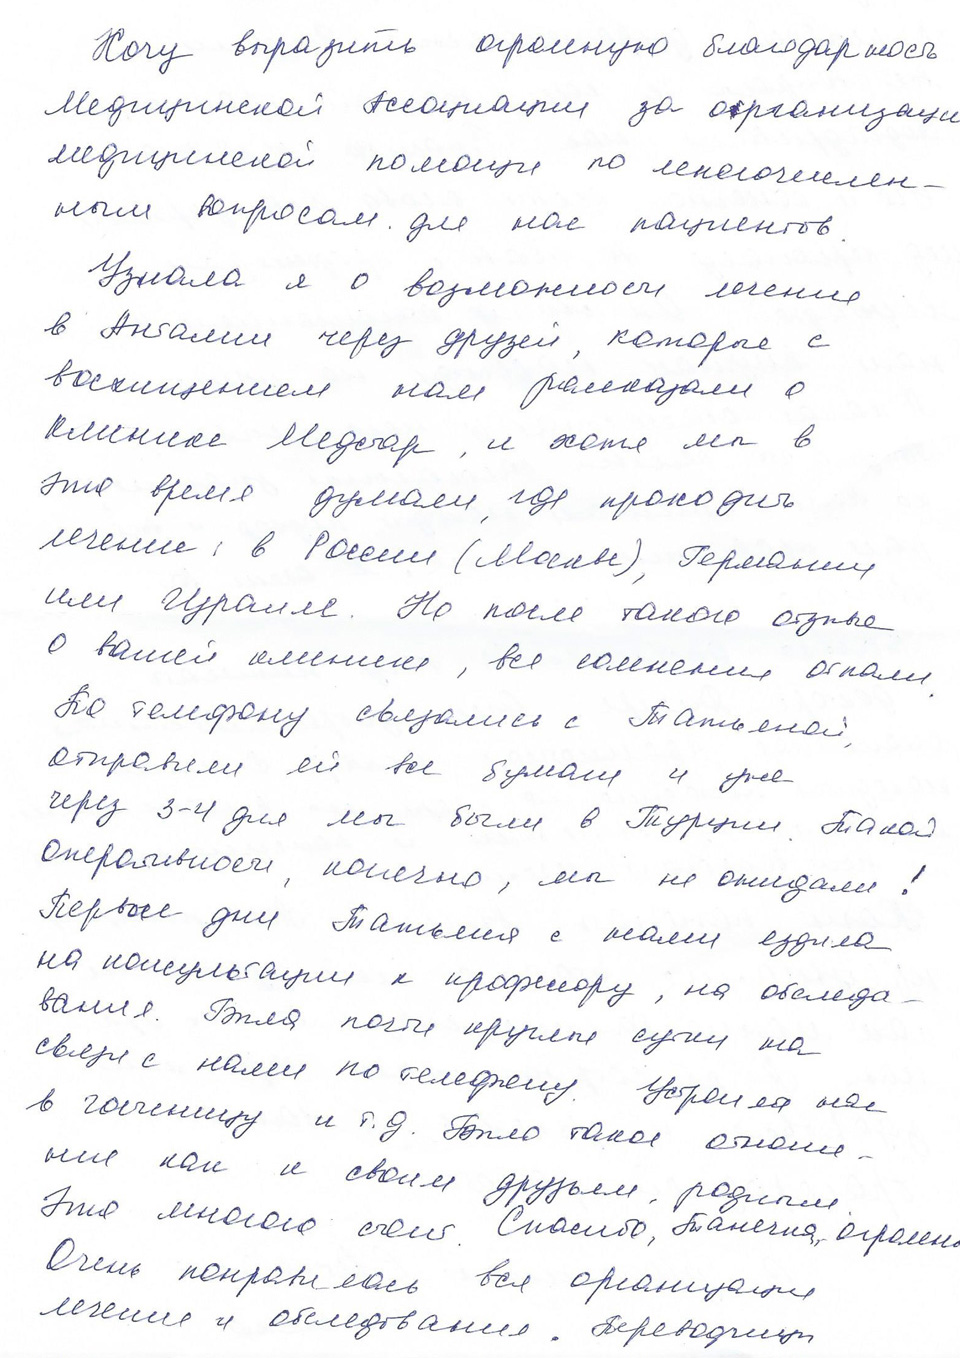 Хочу выразить огромную благодарность
Медицинской Ассоциации за организаци
медицинской помощи по многочислен-
ным вопросам для нас пациентов.
Узнала я о возможности лечения
в Анталии через друзей, которые с
восхищением нам рассказали о
клинике Медстар, и хотя мы в
это время думали, где проходить
лечение: в России (Москве), Германии
или Израиле. Но после такого отзыва
о вашей клинике, все сомнения отпали.
По телефону связались с Татьяной,
отправили ей все бумаги и уже
через 3-4 дня мы были в Турции. Такой
оперативности, конечно, мы не ожидали!
Первые дни Татьяна с нами ездила
на консультации к профессору, на обследо-
вания. Была почти круглые сутки на
связи с нами по телефону. Устроила нас
в гостиницу и т.д. Было такое отноше-
ние как к своим друзьям, родным.
Это многого стоит. Спасибо, Танечка, огромно
Очень понравилась вся организация
лечения и обследования. Переводчики